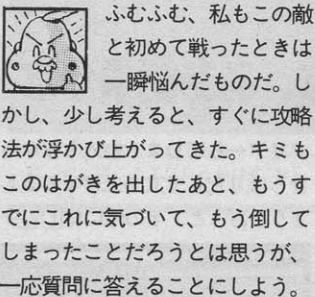 ふむふむ、私もこの敵
と初めて戦ったときは
一瞬悩んだものだ。し
かし、少し考えると、すぐに攻略
法が浮かび上がってきた。キミも
このはがきを出したあと、もうす
でにこれに気づいて、もう倒して
しまったことだろうとは思うが、
一応質問に答えることにしよう。